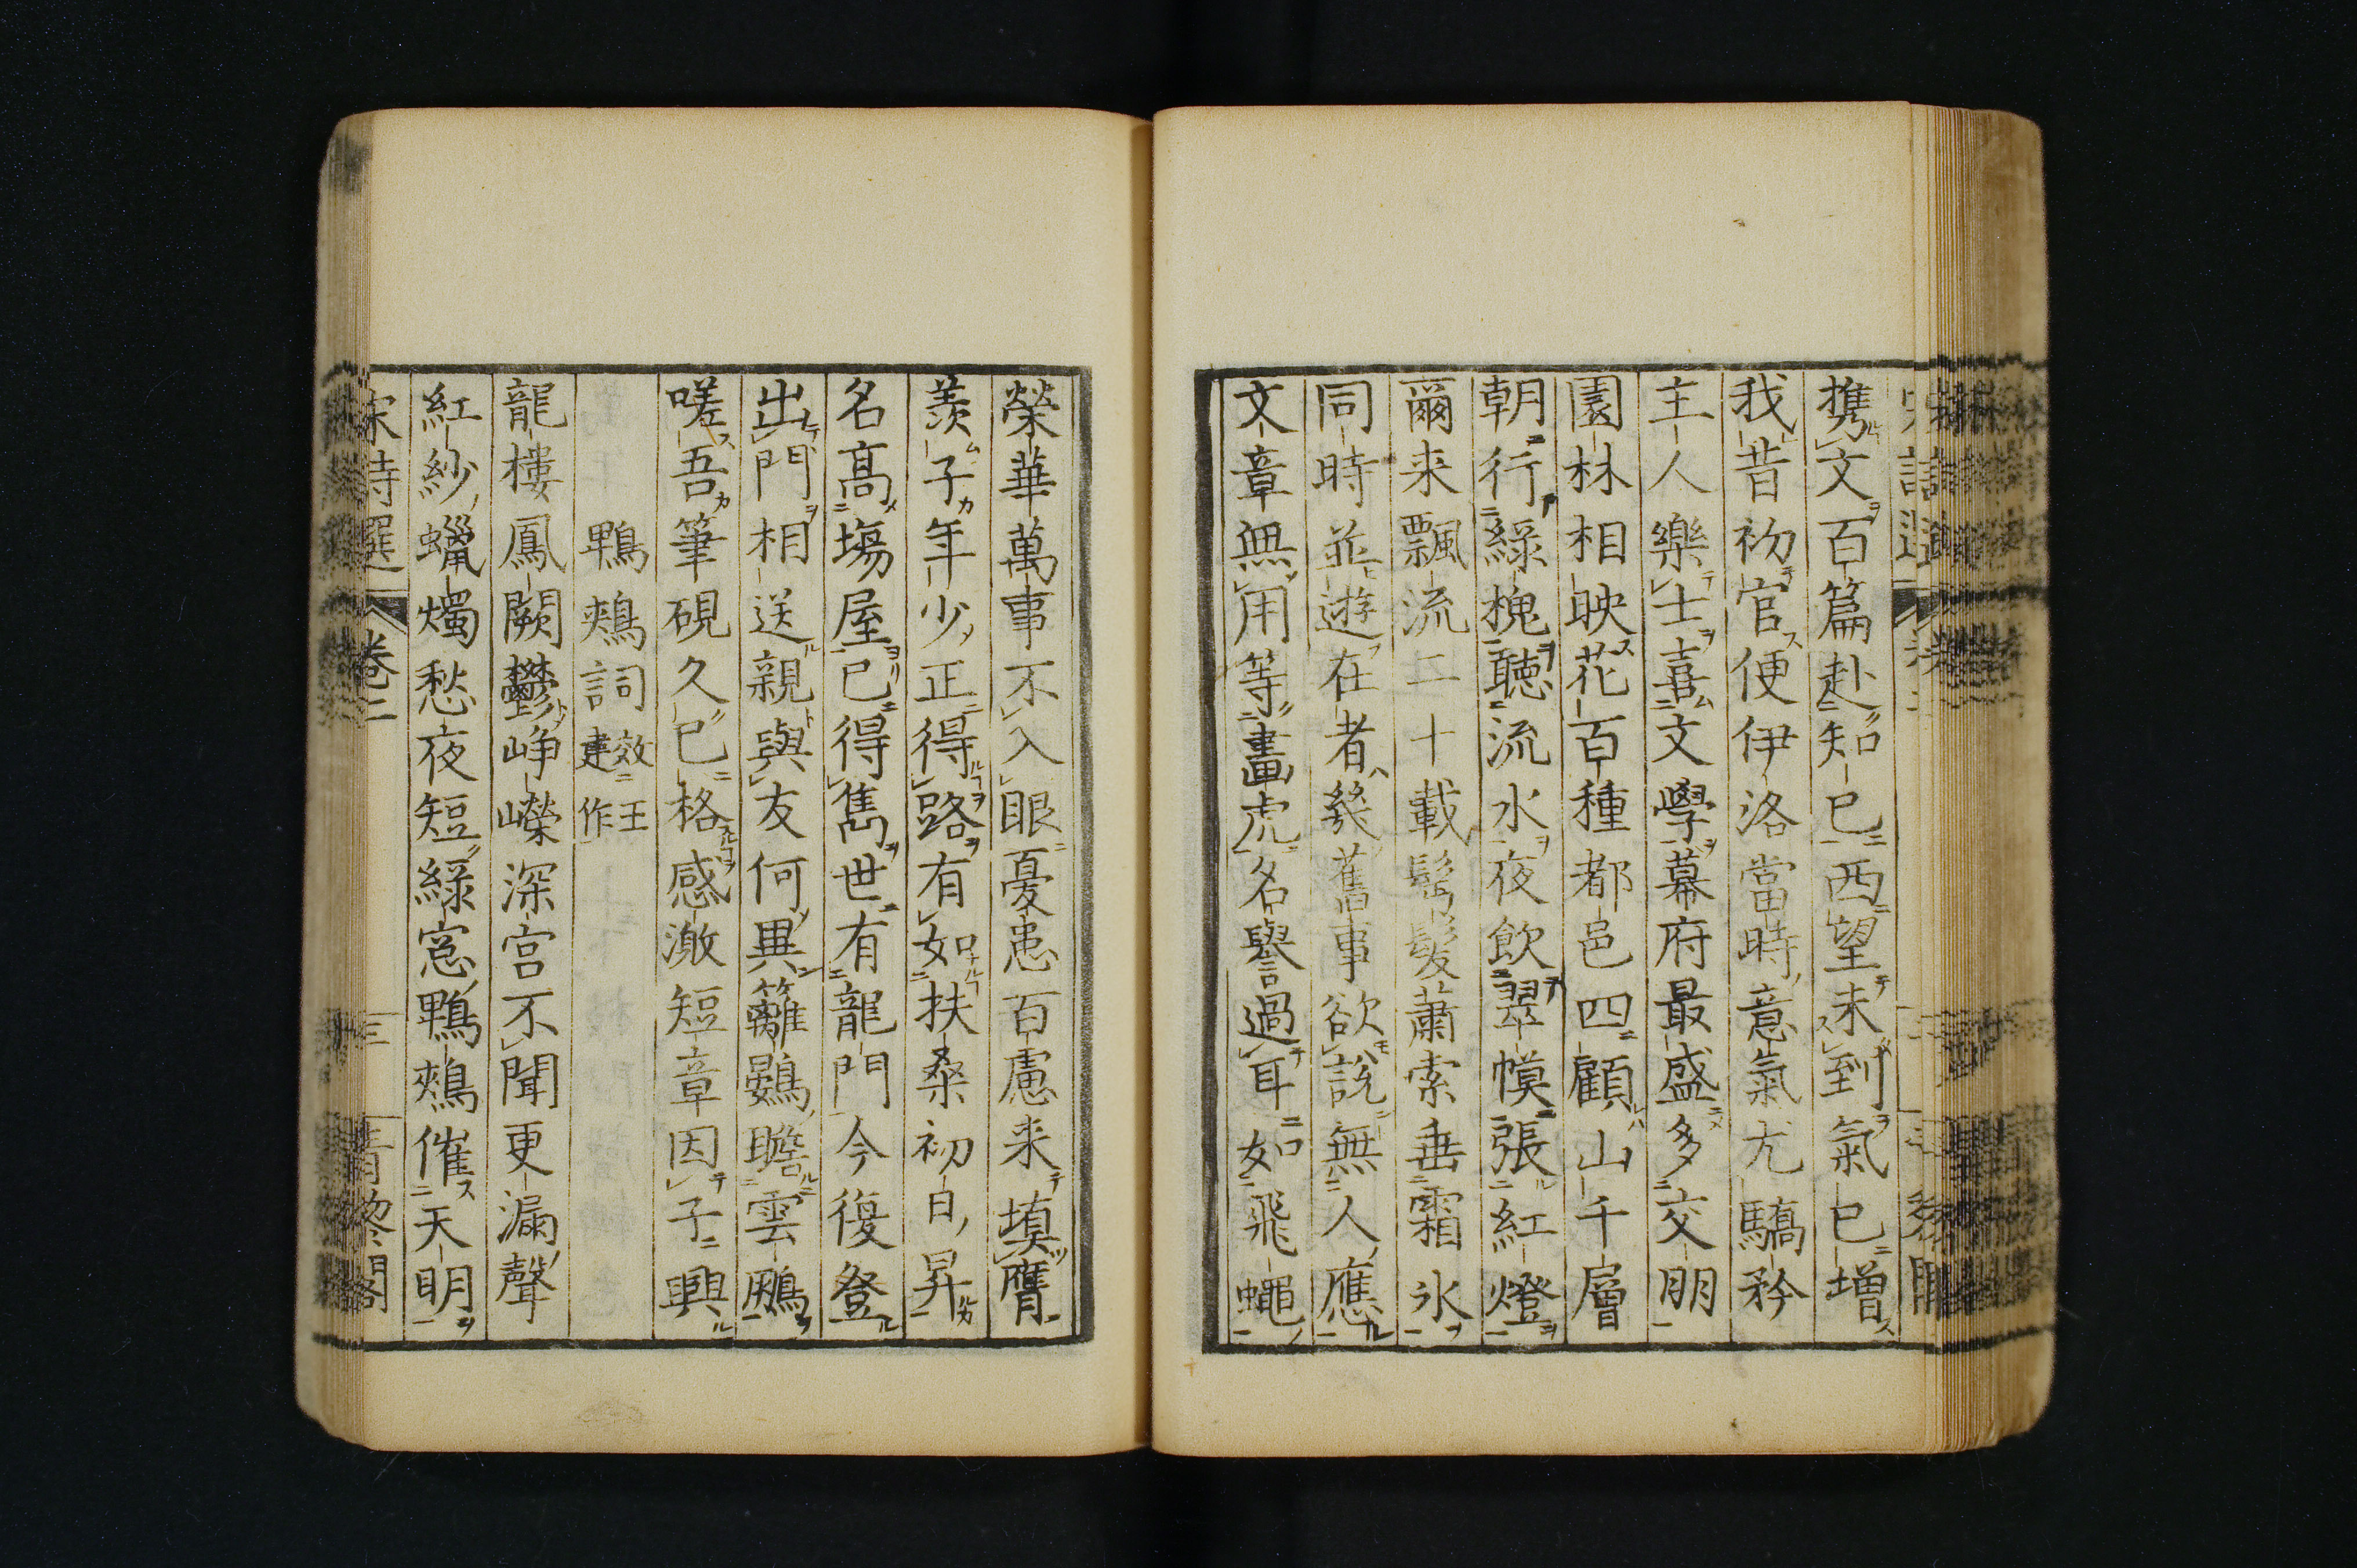 携文百篇赴知己西望未到氣已增
我昔初官便伊洛當時意氣尤驕矜
主人樂士喜文學幕府最盛多交朋
園林相映花百種都邑四顧山千層
朝行綠槐聽流水夜飲翠幙張紅燈
爾来飄流二十載鬢髮蕭索垂霜氷
同時並遊在者幾舊事欲説無人應
文章無用等畫虎名譽過耳如飛蠅
榮華萬事不入眼憂患百慮来塡膺
羨子年少正得路有如扶桑初日昇
名高塲屋已得雋世有龍門今復登
出門相送親與友何異籬鷃瞻雲鵬
嗟吾筆硯久已格感激短章因子興
鵯鵊詞 效王建作
龍樓鳳闕鬱崢嶸深宮不聞更漏聲
紅紗蠟燭愁夜短綠窓鵯鵊催天明
宋詩選 卷二 三 青黎閣